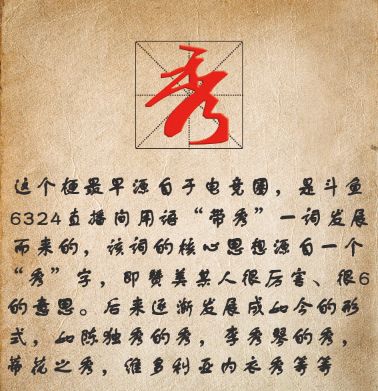 秀
这个梗最早源自于电竞圈，是斗鱼
6324直播间用语“带秀”一词发展
而来的，该词的核心思想源自一个
“秀”字，即赞美某人很厉害、很6
的意思。后来逐渐发展成如今的形
式，如陈独秀的秀，李秀琴的秀，
带花之秀，维多利亚内衣秀等等